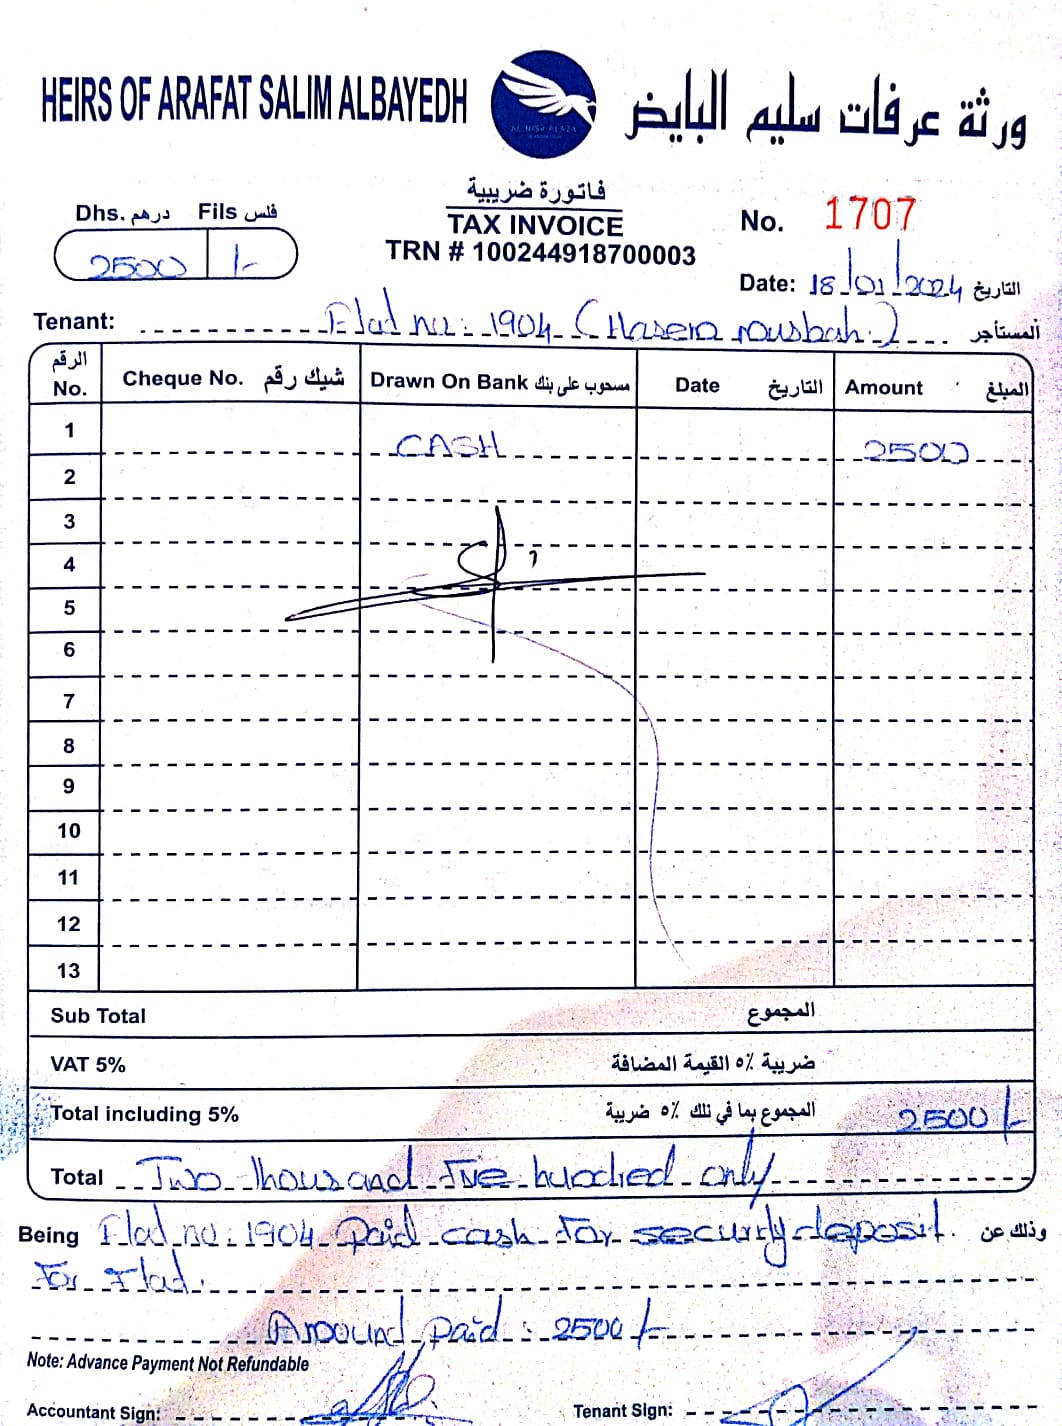 HEIRS OF ARAFAT SALIM ALBAYEDH
ورثة عرفات سليم البايض
AL NISR PLAZA
فاتورة ضريبية
TAX INVOICE
TRN # 100244918700003
Dhs. درهم Fils فلس
2500 /-
No. 1707
Date: 18/01/2024 التاريخ
Tenant: Flat no: 1904 ( المستأجر
الرقم No. Cheque No. شيك رقم Drawn On Bank مسحوب على بنك Date التاريخ Amount المبلغ
1 CASH 2500
2
3
4
5
6
7
8
9
10
11
12
13
Sub Total المجموع
VAT 5% ضريبة ٥٪ القيمة المضافة
Total including 5% المجموع بما في ذلك ٥٪ ضريبة 2500/-
Total Two thousand five hundred only
Being Flat no: 1904 Paid cash for security deposit. وذلك عن
For Flat.
Amount paid: 2500/-
Note: Advance Payment Not Refundable
Accountant Sign:
Tenant Sign: